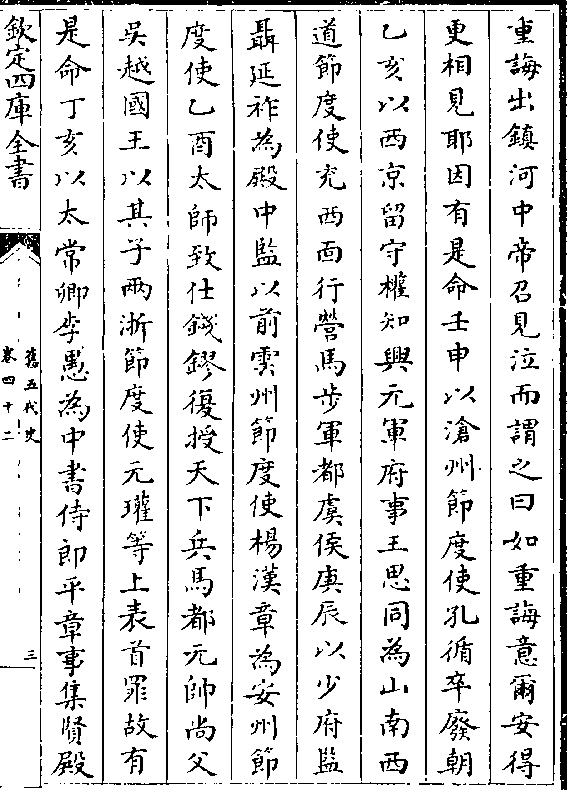 重誨出鎮河中帝召見泣而謂之曰如重誨意爾安得
更相見耶因有是命壬申以滄州節度使孔循卒廢朝
乙亥以西京留守權知興元軍府事王思同為山南西
道節度使充西面行營馬步軍都虞侯庚辰以少府監
聶延祚為殿中監以前雲州節度使楊漢章為安州節
度使乙酉太師致仕錢鏐復授天下兵馬都元帥尚父
吳越國王以其子兩浙節度使元瓘等上表首罪故有
是命丁亥以太常卿李愚為中書侍郎平章事集賢殿
欽定四庫全書
舊五代史
卷四十二
三